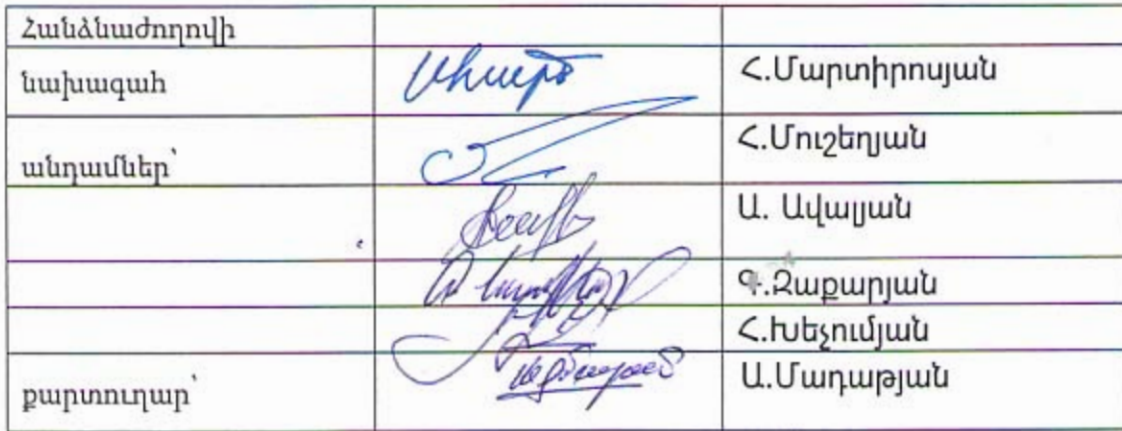 Հանձնաժողովի
նախագահ Հ.Մարտիրոսյան
անդամներ՝ Հ.Մուշեղյան
Ա. Ավալյան
Գ.Զաքարյան
Հ.Խեչումյան
քարտուղար՝ Ա.Մադաթյան